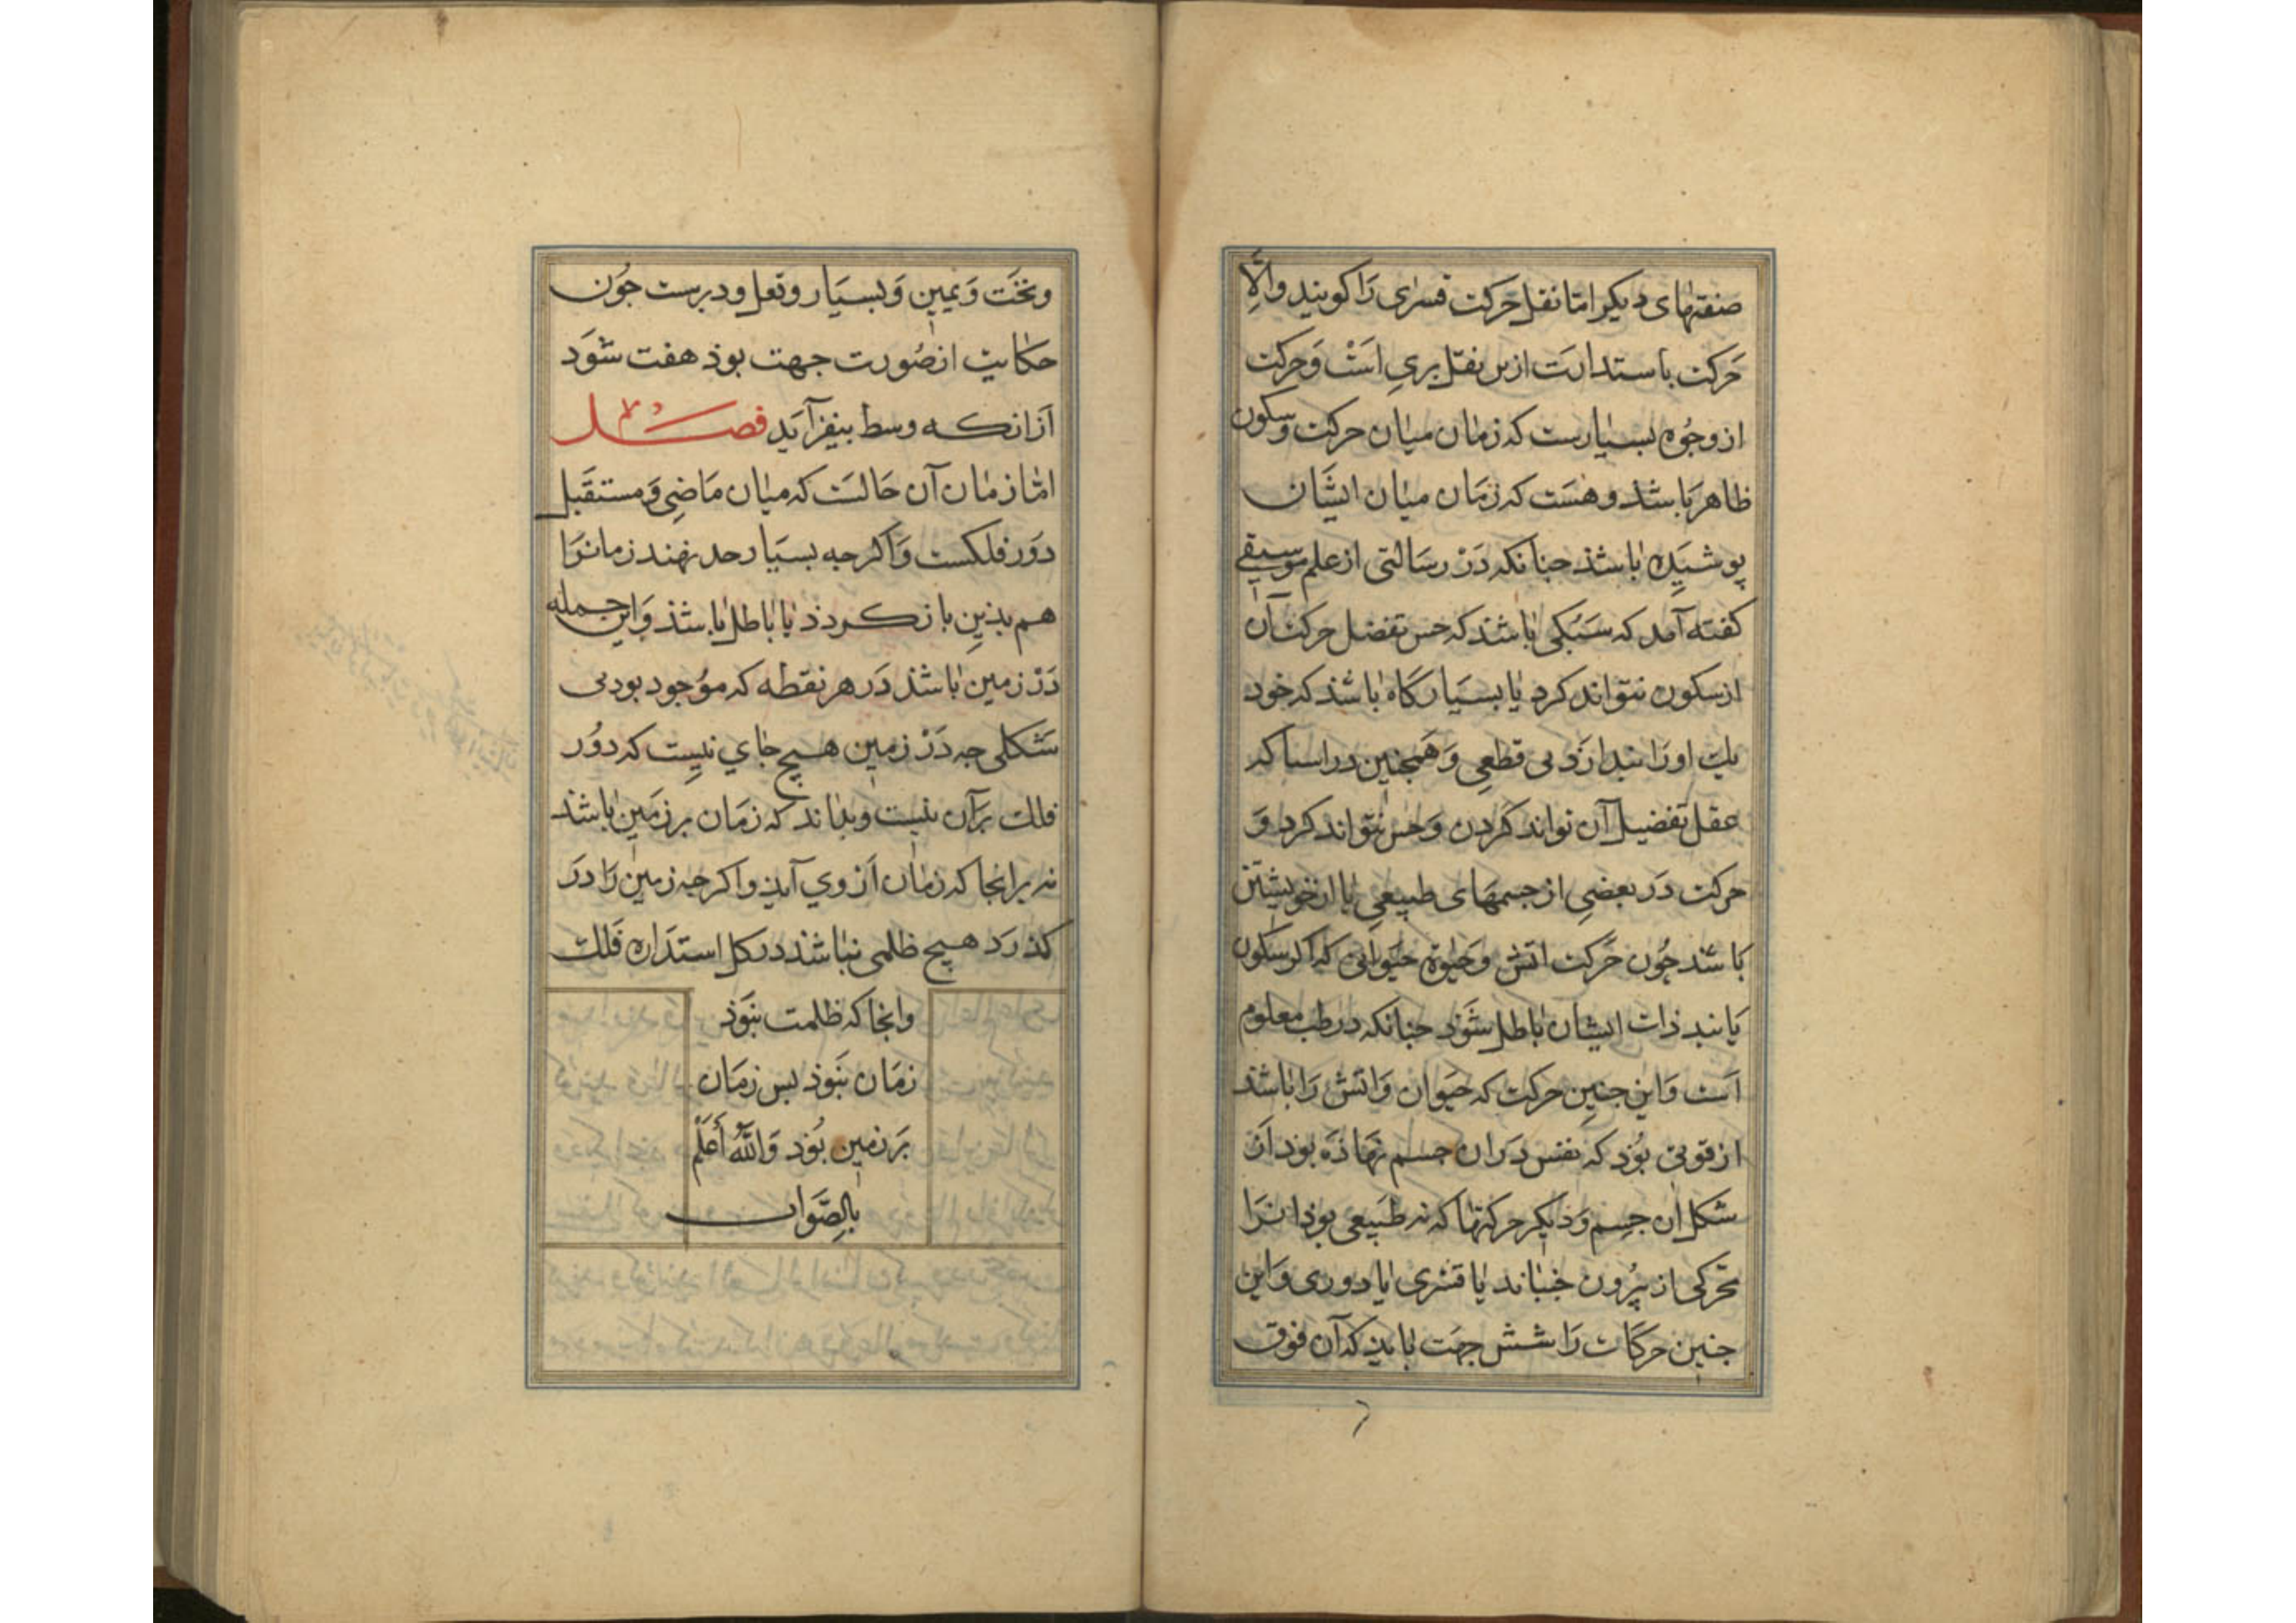 صنفتهای دیکر اما نقل حرکت قسری را کویند والا
حرکت باستدارت ازین نقل بری است و حرکت
از وجوه بسیارست که زمان میان حرکت و سکون
ظاهر باشد و هست که زمان میان ایشان
پوشیده باشذ جنانکه در رسالتی از علم موسیقی
کفته آمد که سبکی باشد که حس تفضل حرکت آن
از سکون نتواند کرد یا بسیار کاه باشذ که خود
یک او را بندارد بی قطعی و همجنین در اسیا که
عقل تفضیل آن تواند کردن و حس نتواند کرد و
حرکت در بعضی از جسمهای طبیعی یا از خویشتن
باشد جون حرکت اتش و حیوة حیوانی که اکر سکون
یابند ذات ایشان باطل شود جنانکه در طب معلوم
است و این جنین حرکت که حیوان و اتش را باشد
از قوتی بود که نفس در ان جسم نهاذه بود از
شکل ان جسم و دیکر حرکتها که نه طبیعی بوذ انرا
محرکی از بیرون جنباند یا قسری یا دوری و این
جنین حرکات را شش جهت بایذ که آن فوق
وتحت و یمین و یسار و تعل و دبرست جون
حکایت از صورت جهت بوذ هفت شود
از انکه وسط بیفزاید فصل
اما زمان آن حالست که میان ماضی و مستقبل
دور فلکست و اکرجه بسیار حد نهند زمانرا
هم بذین باز کردذ یا باطل باشذ و این جمله
در زمین باشذ در هر نقطه که موجود بود بی
شکلی جه در زمین هیچ جای نیست که دور
فلک بر آن نیست و بداند که زمان بر زمین باشد
نه برانجا که زمان از وی آیذ و اکرجه زمین را در
کذرد هیچ ظلمی نباشد در کل استداره فلک
وانجا که ظلمت نبوذ
زمان نبوذ بس زمان
بر زمین بود والله أعلم
بالصواب